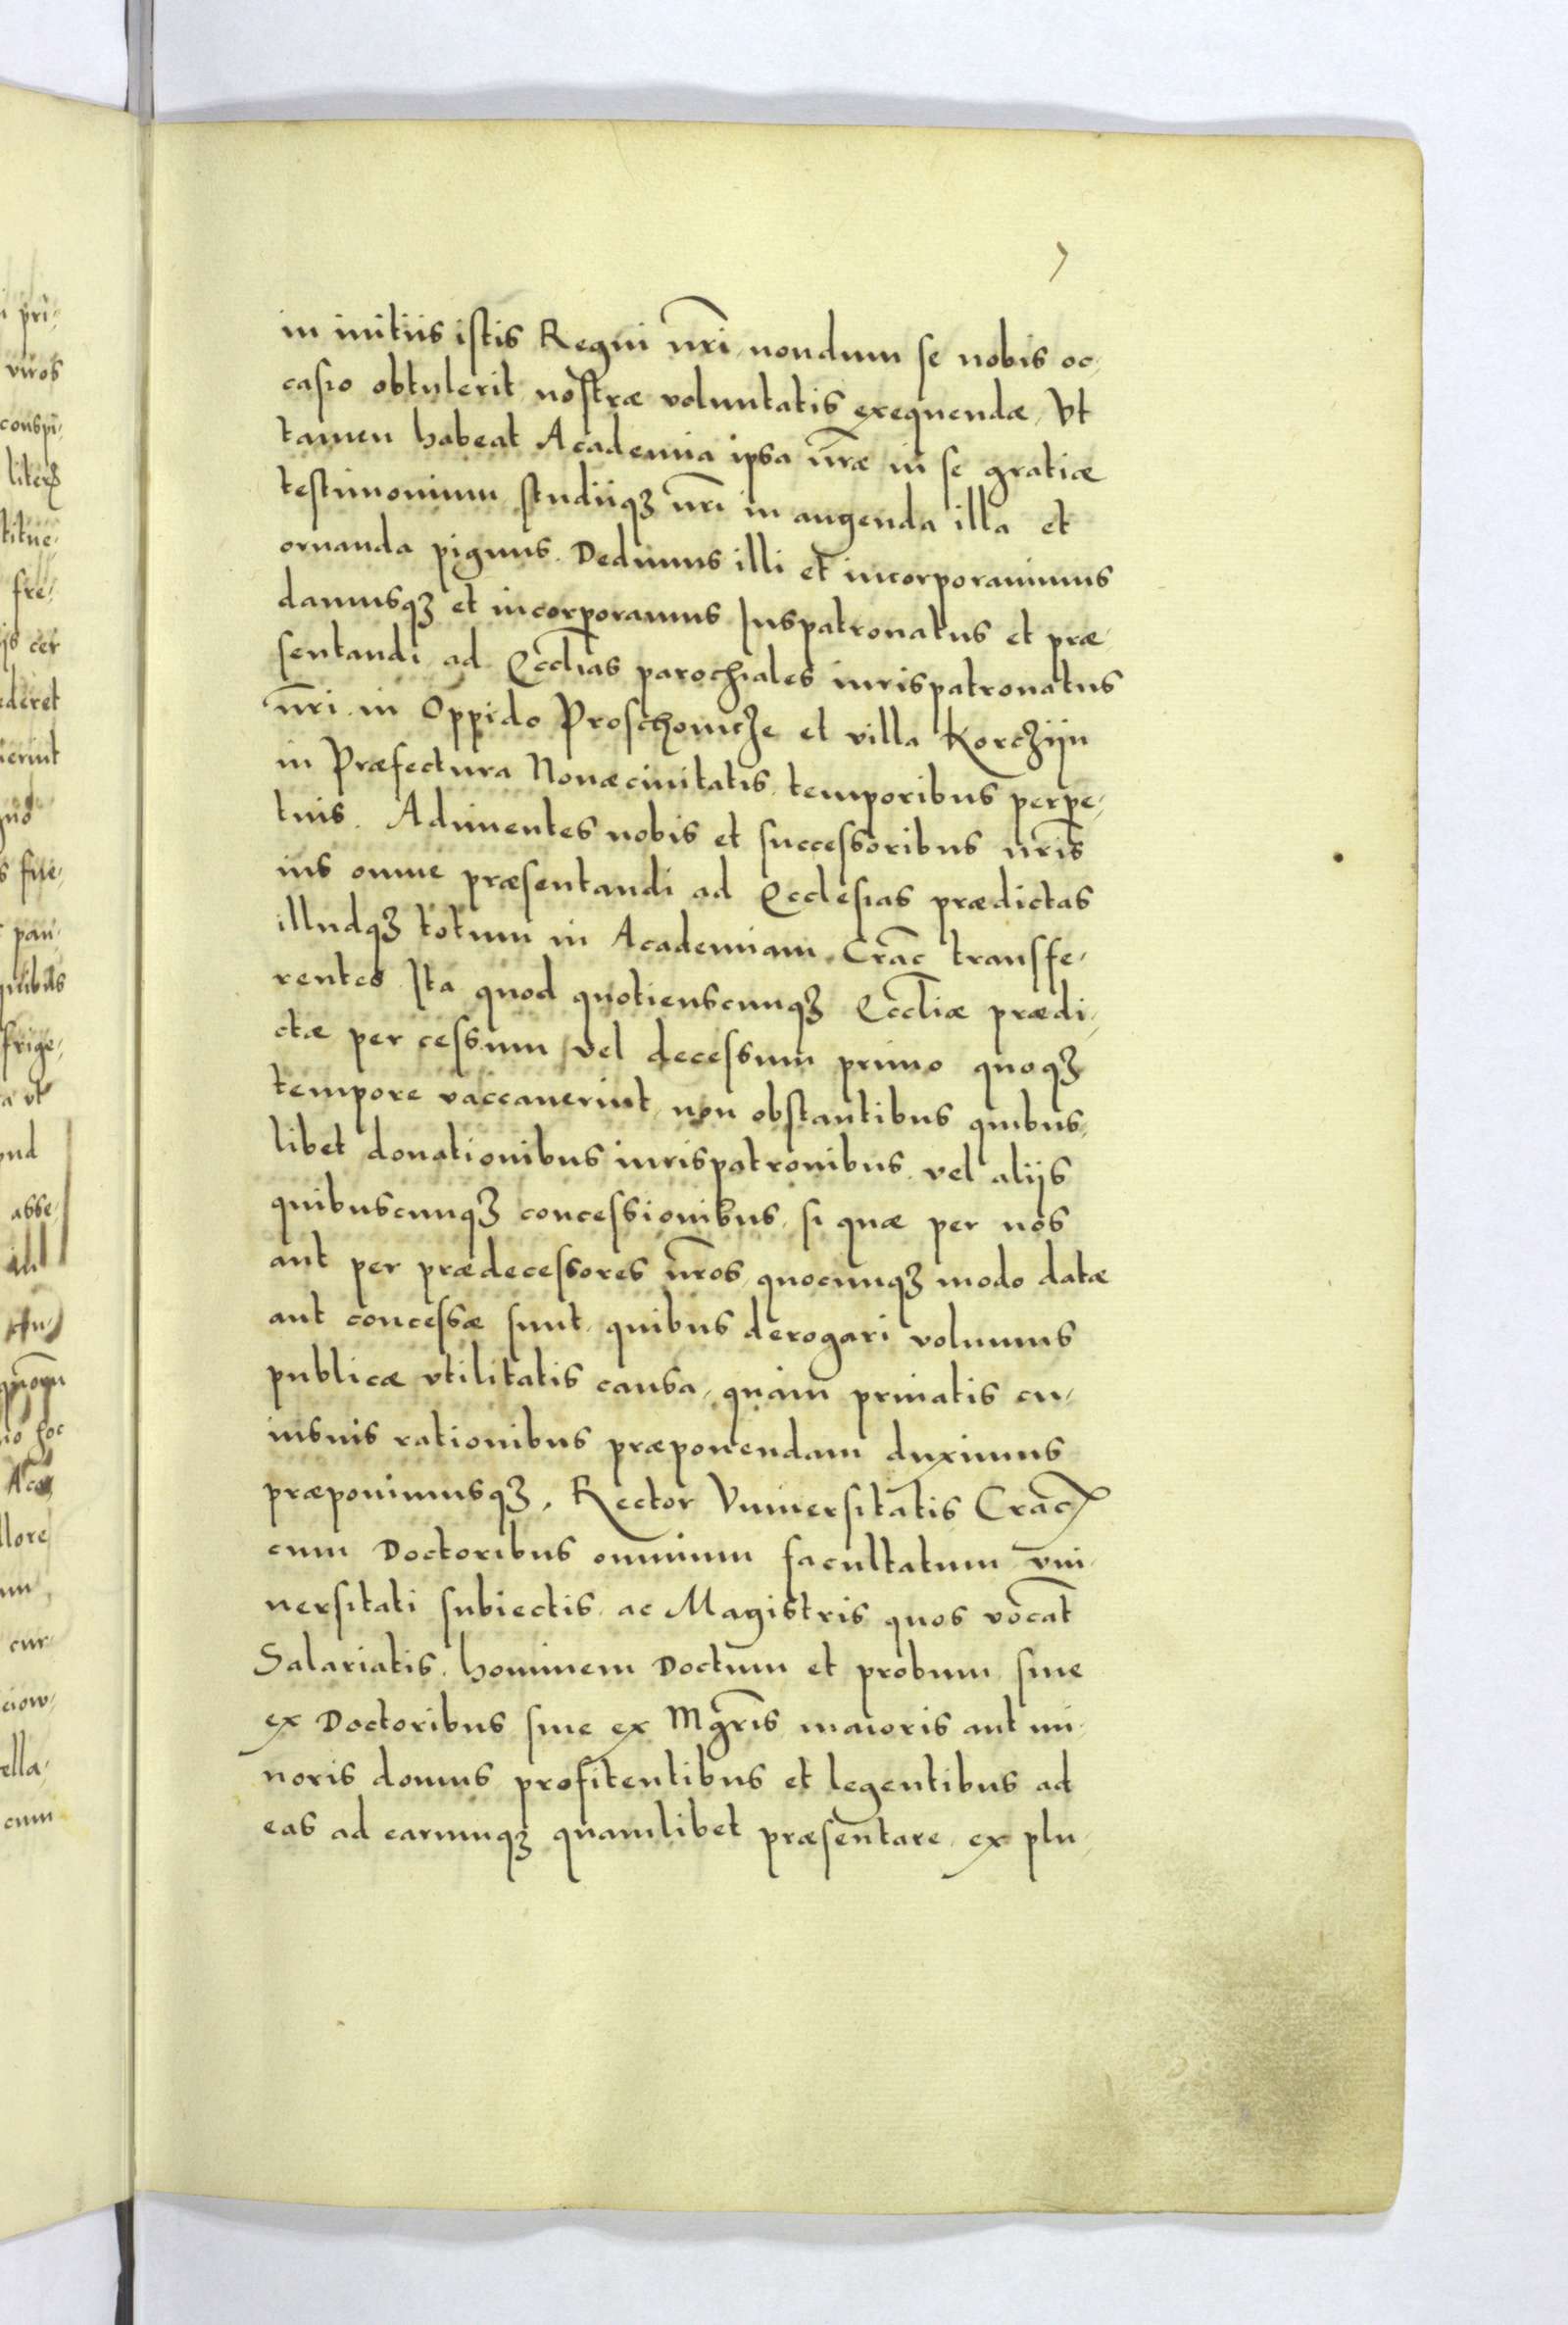 7
in initiis istis Regni nr̃i, nondum se nobis oc-
casio obtulerit nostræ voluntatis exequendæ, Vt
tamen habeat Academia ipsa nr̃æ in se gratiæ
testimonium studiiqꝫ nr̃i in augenda illa et
ornanda pignus. Dedimus illi et incorporauimus
damusqꝫ et incorporamus Iuspatronatus et præ-
sentandi ad Eccl̃ias parochiales iurispatronatus
nr̃i in Oppido Proschowicze et villa Korczijn
in Præfectura Nouæciuitatis, temporibus perpe-
tuis. Adimentes nobis et successoribus nr̃is
ius omne præsentandi ad Ecclesias prædictas
illudqꝫ totum in Academiam Crac̃ transffe-
rentes Ita quod quotienscunqꝫ Eccl̃iæ prædi-
ctæ per cessum vel decessum primo quoqꝫ
tempore vaccauerint, non obstantibus quibus-
libet donationibus iurispatronibus, vel alijs
quibuscunqꝫ concessionibus, si quæ per nos
aut per prædecessores nr̃os quocunqꝫ modo datæ
aut concessæ sunt, quibus derogari volumus
publicæ vtilitatis causa, quàm priuatis cu-
iusuis rationibus præponendam duximus
præponimusqꝫ, Rector Vniuersitatis Crac̃
cum Doctoribus omnium facultatum vni-
uersitati subiectis, ac Magistris quos vocãt
Salariatis, hominem Doctum et probum siue
ex Doctoribus siue ex Mgr̃is maioris aut mi-
noris domus profitentibus et legentibus ad
eas ad earumqꝫ quamlibet præsentare, ex plu-